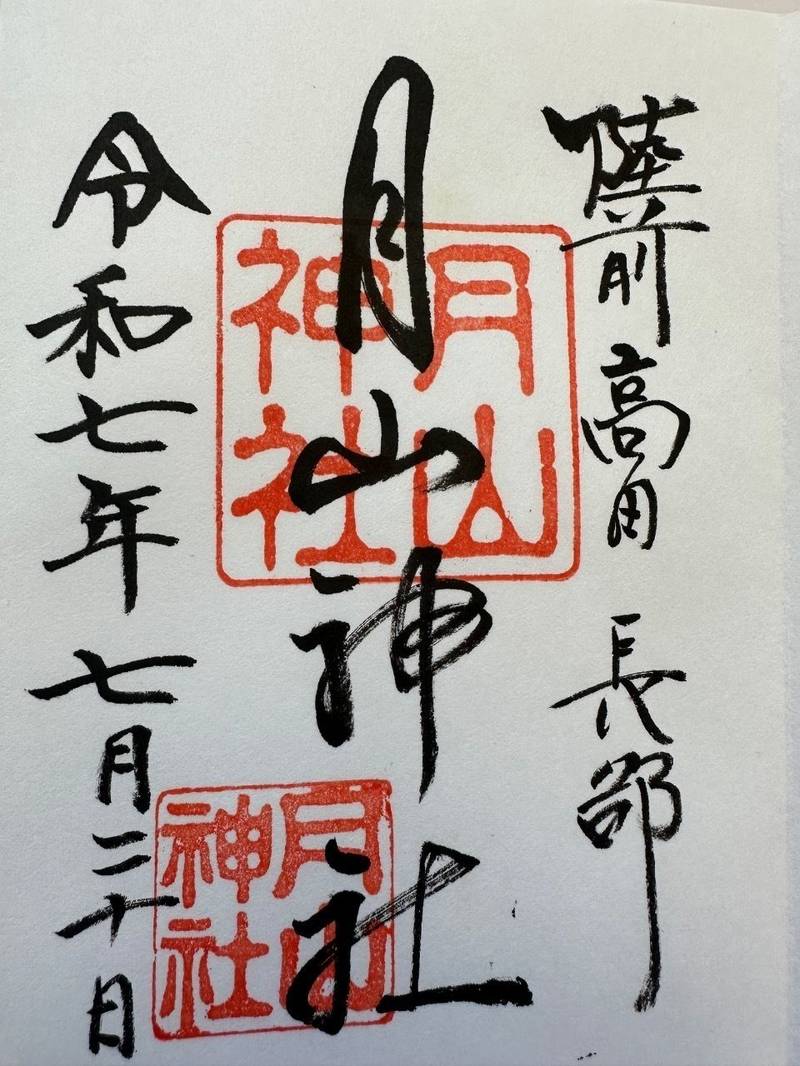 陸前高田 長部
月山神社
月山神社
月山神社
令和七年 七月二十日